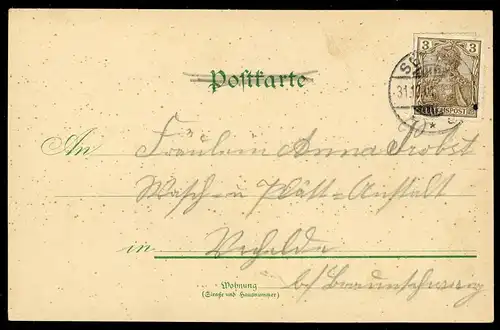 3
REICHSPOST
31.12
Postkarte
An Fräulein Anna Probst
Wasch- u Plätt-Anstalt
in Vechelde
Wohnung
(Straße und Hausnummer)
b/ Braunschweig